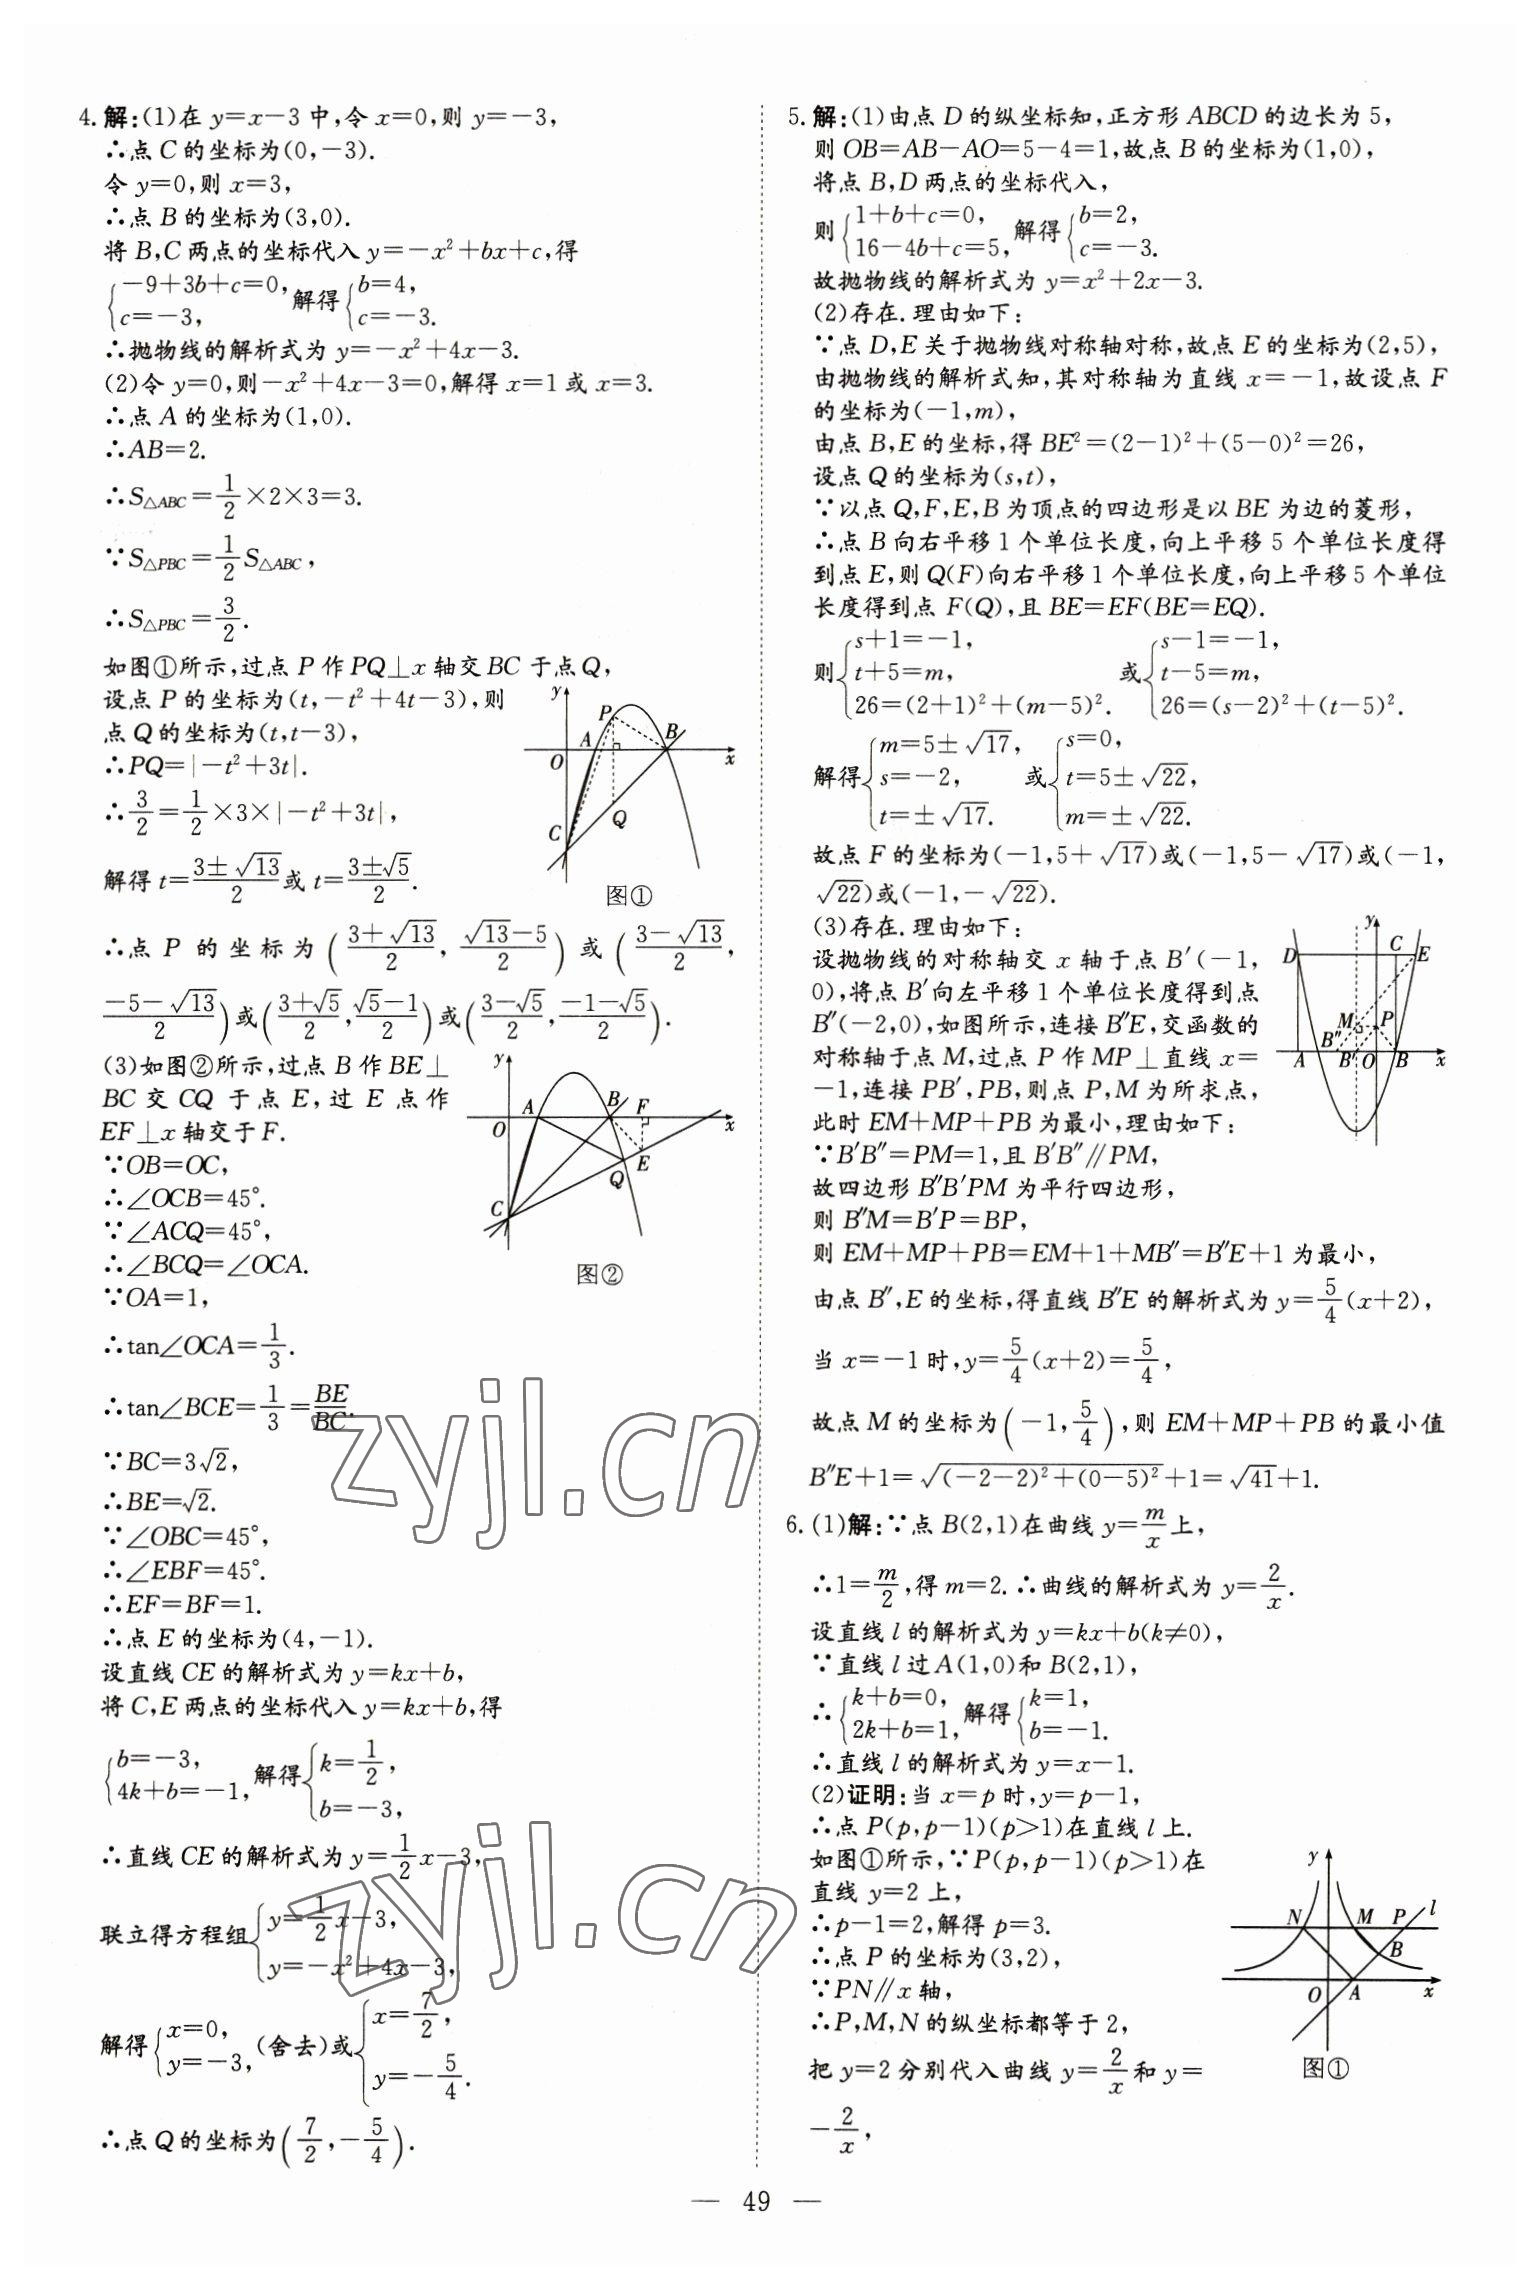 4.解:(1)在 y=x-3 中,令 x=0,则 y=-3,
∴点 C 的坐标为(0,-3).
令 y=0,则 x=3,
∴点 B 的坐标为(3,0).
将 B,C 两点的坐标代入 y=-x²+bx+c,得
{-9+3b+c=0, 解得 {b=4,
c=-3, c=-3.
∴抛物线的解析式为 y=-x²+4x-3.
(2)令 y=0,则-x²+4x-3=0,解得 x=1 或 x=3.
∴点 A 的坐标为(1,0).
∴AB=2.
∴S△ABC=1/2×2×3=3.
∵S△PBC=1/2 S△ABC,
∴S△PBC=3/2.
如图①所示,过点 P 作 PQ⊥x 轴交 BC 于点 Q,
设点 P 的坐标为(t,-t²+4t-3),则
点 Q 的坐标为(t,t-3),
∴PQ=|-t²+3t|.
∴3/2=1/2×3×|-t²+3t|,
解得 t=(3±√13)/2 或 t=(3±√5)/2.
y P A B O x Q C
图①
∴点 P 的坐标为((3+√13)/2,(√13-5)/2)或((3-√13)/2,
(-5-√13)/2)或((3+√5)/2,(√5-1)/2)或((3-√5)/2,(-1-√5)/2).
(3)如图②所示,过点 B 作 BE⊥
BC 交 CQ 于点 E,过 E 点作
EF⊥x 轴交于 F.
∵OB=OC,
∴∠OCB=45°.
∵∠ACQ=45°,
∴∠BCQ=∠OCA.
∵OA=1,
y A B F O x E Q C
图②
∴tan∠OCA=1/3.
∴tan∠BCE=1/3=BE/BC.
∵BC=3√2,
∴BE=√2.
∵∠OBC=45°,
∴∠EBF=45°.
∴EF=BF=1.
∴点 E 的坐标为(4,-1).
设直线 CE 的解析式为 y=kx+b,
将 C,E 两点的坐标代入 y=kx+b,得
{b=-3, 解得 {k=1/2,
4k+b=-1, b=-3,
∴直线 CE 的解析式为 y=1/2x-3,
联立得方程组{y=1/2x-3,
y=-x²+4x-3,
解得{x=0, (舍去)或{x=7/2,
y=-3, y=-5/4.
∴点 Q 的坐标为(7/2,-5/4).
5.解:(1)由点 D 的纵坐标知,正方形 ABCD 的边长为 5,
则 OB=AB-AO=5-4=1,故点 B 的坐标为(1,0),
将点 B,D 两点的坐标代入,
则{1+b+c=0, 解得{b=2,
16-4b+c=5, c=-3.
故抛物线的解析式为 y=x²+2x-3.
(2)存在.理由如下:
∵点 D,E 关于抛物线对称轴对称,故点 E 的坐标为(2,5),
由抛物线的解析式知,其对称轴为直线 x=-1,故设点 F
的坐标为(-1,m),
由点 B,E 的坐标,得 BE²=(2-1)²+(5-0)²=26,
设点 Q 的坐标为(s,t),
∵以点 Q,F,E,B 为顶点的四边形是以 BE 为边的菱形,
∴点 B 向右平移 1 个单位长度,向上平移 5 个单位长度得
到点 E,则 Q(F)向右平移 1 个单位长度,向上平移 5 个单位
长度得到点 F(Q),且 BE=EF(BE=EQ).
则{s+1=-1, 或{s-1=-1,
t+5=m, t-5=m,
26=(2+1)²+(m-5)². 26=(s-2)²+(t-5)².
解得{m=5±√17, 或{s=0,
s=-2, t=5±√22,
t=±√17. m=±√22.
故点 F 的坐标为(-1,5+√17)或(-1,5-√17)或(-1,
√22)或(-1,-√22).
(3)存在.理由如下:
设抛物线的对称轴交 x 轴于点 B′(-1,
0),将点 B′向左平移 1 个单位长度得到点
B″(-2,0),如图所示,连接 B″E,交函数的
对称轴于点 M,过点 P 作 MP⊥直线 x=
-1,连接 PB′,PB,则点 P,M 为所求点,
y D C E M P A B″ B′ O B x
此时 EM+MP+PB 为最小,理由如下:
∵B′B″=PM=1,且 B′B″∥PM,
故四边形 B″B′PM 为平行四边形,
则 B″M=B′P=BP,
则 EM+MP+PB=EM+1+MB″=B″E+1 为最小,
由点 B″,E 的坐标,得直线 B″E 的解析式为 y=5/4(x+2),
当 x=-1 时,y=5/4(x+2)=5/4,
故点 M 的坐标为(-1,5/4),则 EM+MP+PB 的最小值
B″E+1=√((-2-2)²+(0-5)²)+1=√41+1.
6.(1)解:∵点 B(2,1)在曲线 y=m/x 上,
∴1=m/2,得 m=2.∴曲线的解析式为 y=2/x.
设直线 l 的解析式为 y=kx+b(k≠0),
∵直线 l 过 A(1,0)和 B(2,1),
∴{k+b=0, 解得{k=1,
2k+b=1, b=-1.
∴直线 l 的解析式为 y=x-1.
(2)证明:当 x=p 时,y=p-1,
∴点 P(p,p-1)(p>1)在直线 l 上.
如图①所示,∵P(p,p-1)(p>1)在
直线 y=2 上,
∴p-1=2,解得 p=3.
∴点 P 的坐标为(3,2),
∵PN∥x 轴,
∴P,M,N 的纵坐标都等于 2,
把 y=2 分别代入曲线 y=2/x 和 y=
-2/x,
y N M P l B O A x
图①
zyjl.cn
zyjl.cn
— 49 —